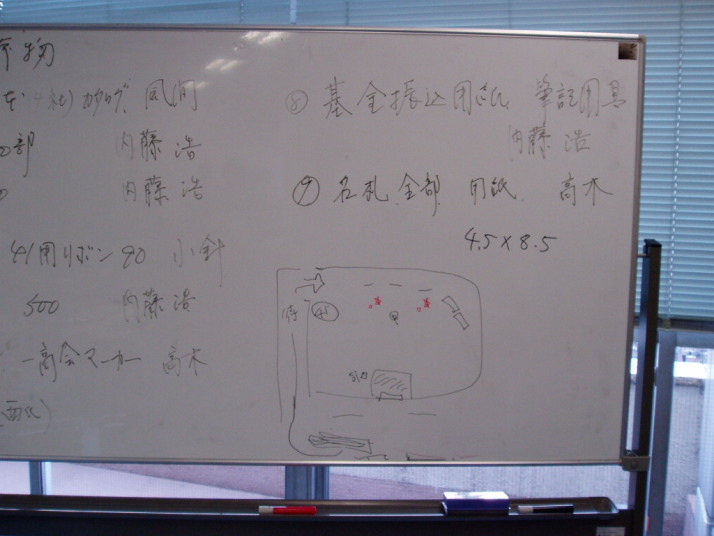 カタログ 風間
部 内藤浩
内藤浩
41用リボン 90 小針
500 内藤浩
一高会マーカー 高木
⑧ 基金振込用紙 筆記用具
内藤浩
⑨ 名札 全部 用紙 高木
4.5×8.5
41